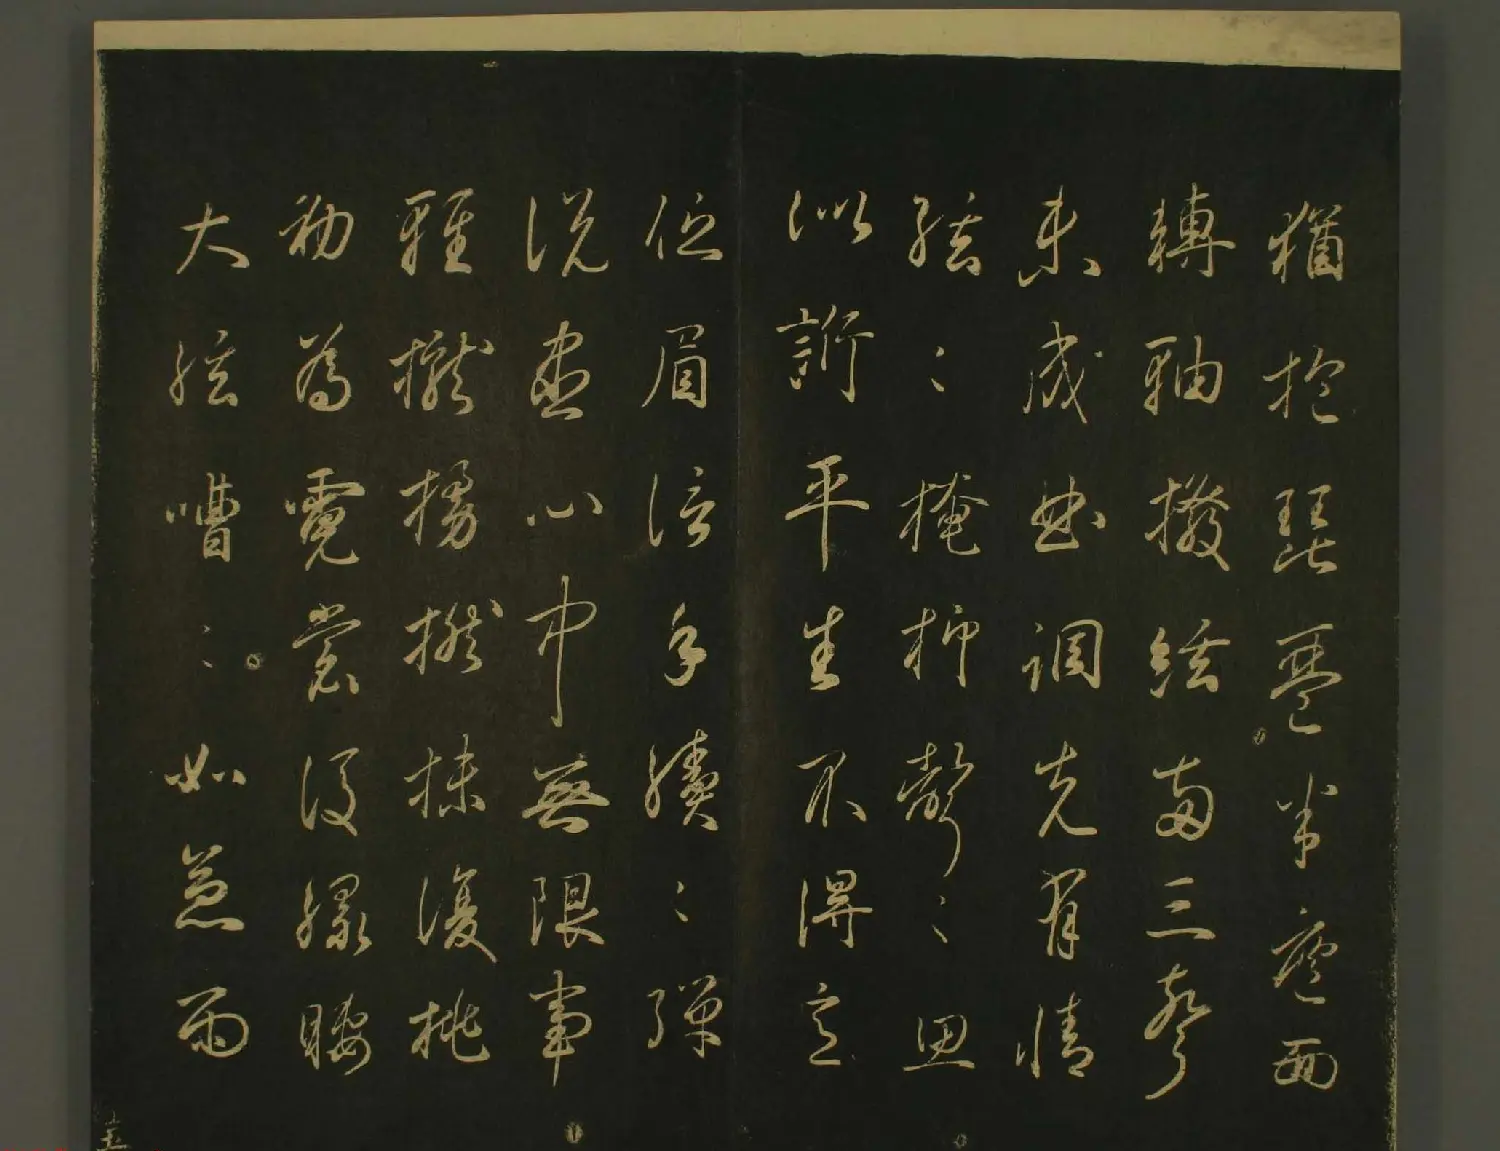 猶抱琵琶半遮面
轉軸撥絃兩三聲
未成曲調先有情
弦〻掩抑聲〻思
似訴平生不得
低眉信手續〻彈
說盡心中無限事
輕攏慢撚抹復挑
初為霓裳後綠腰
大弦嘈〻如急雨